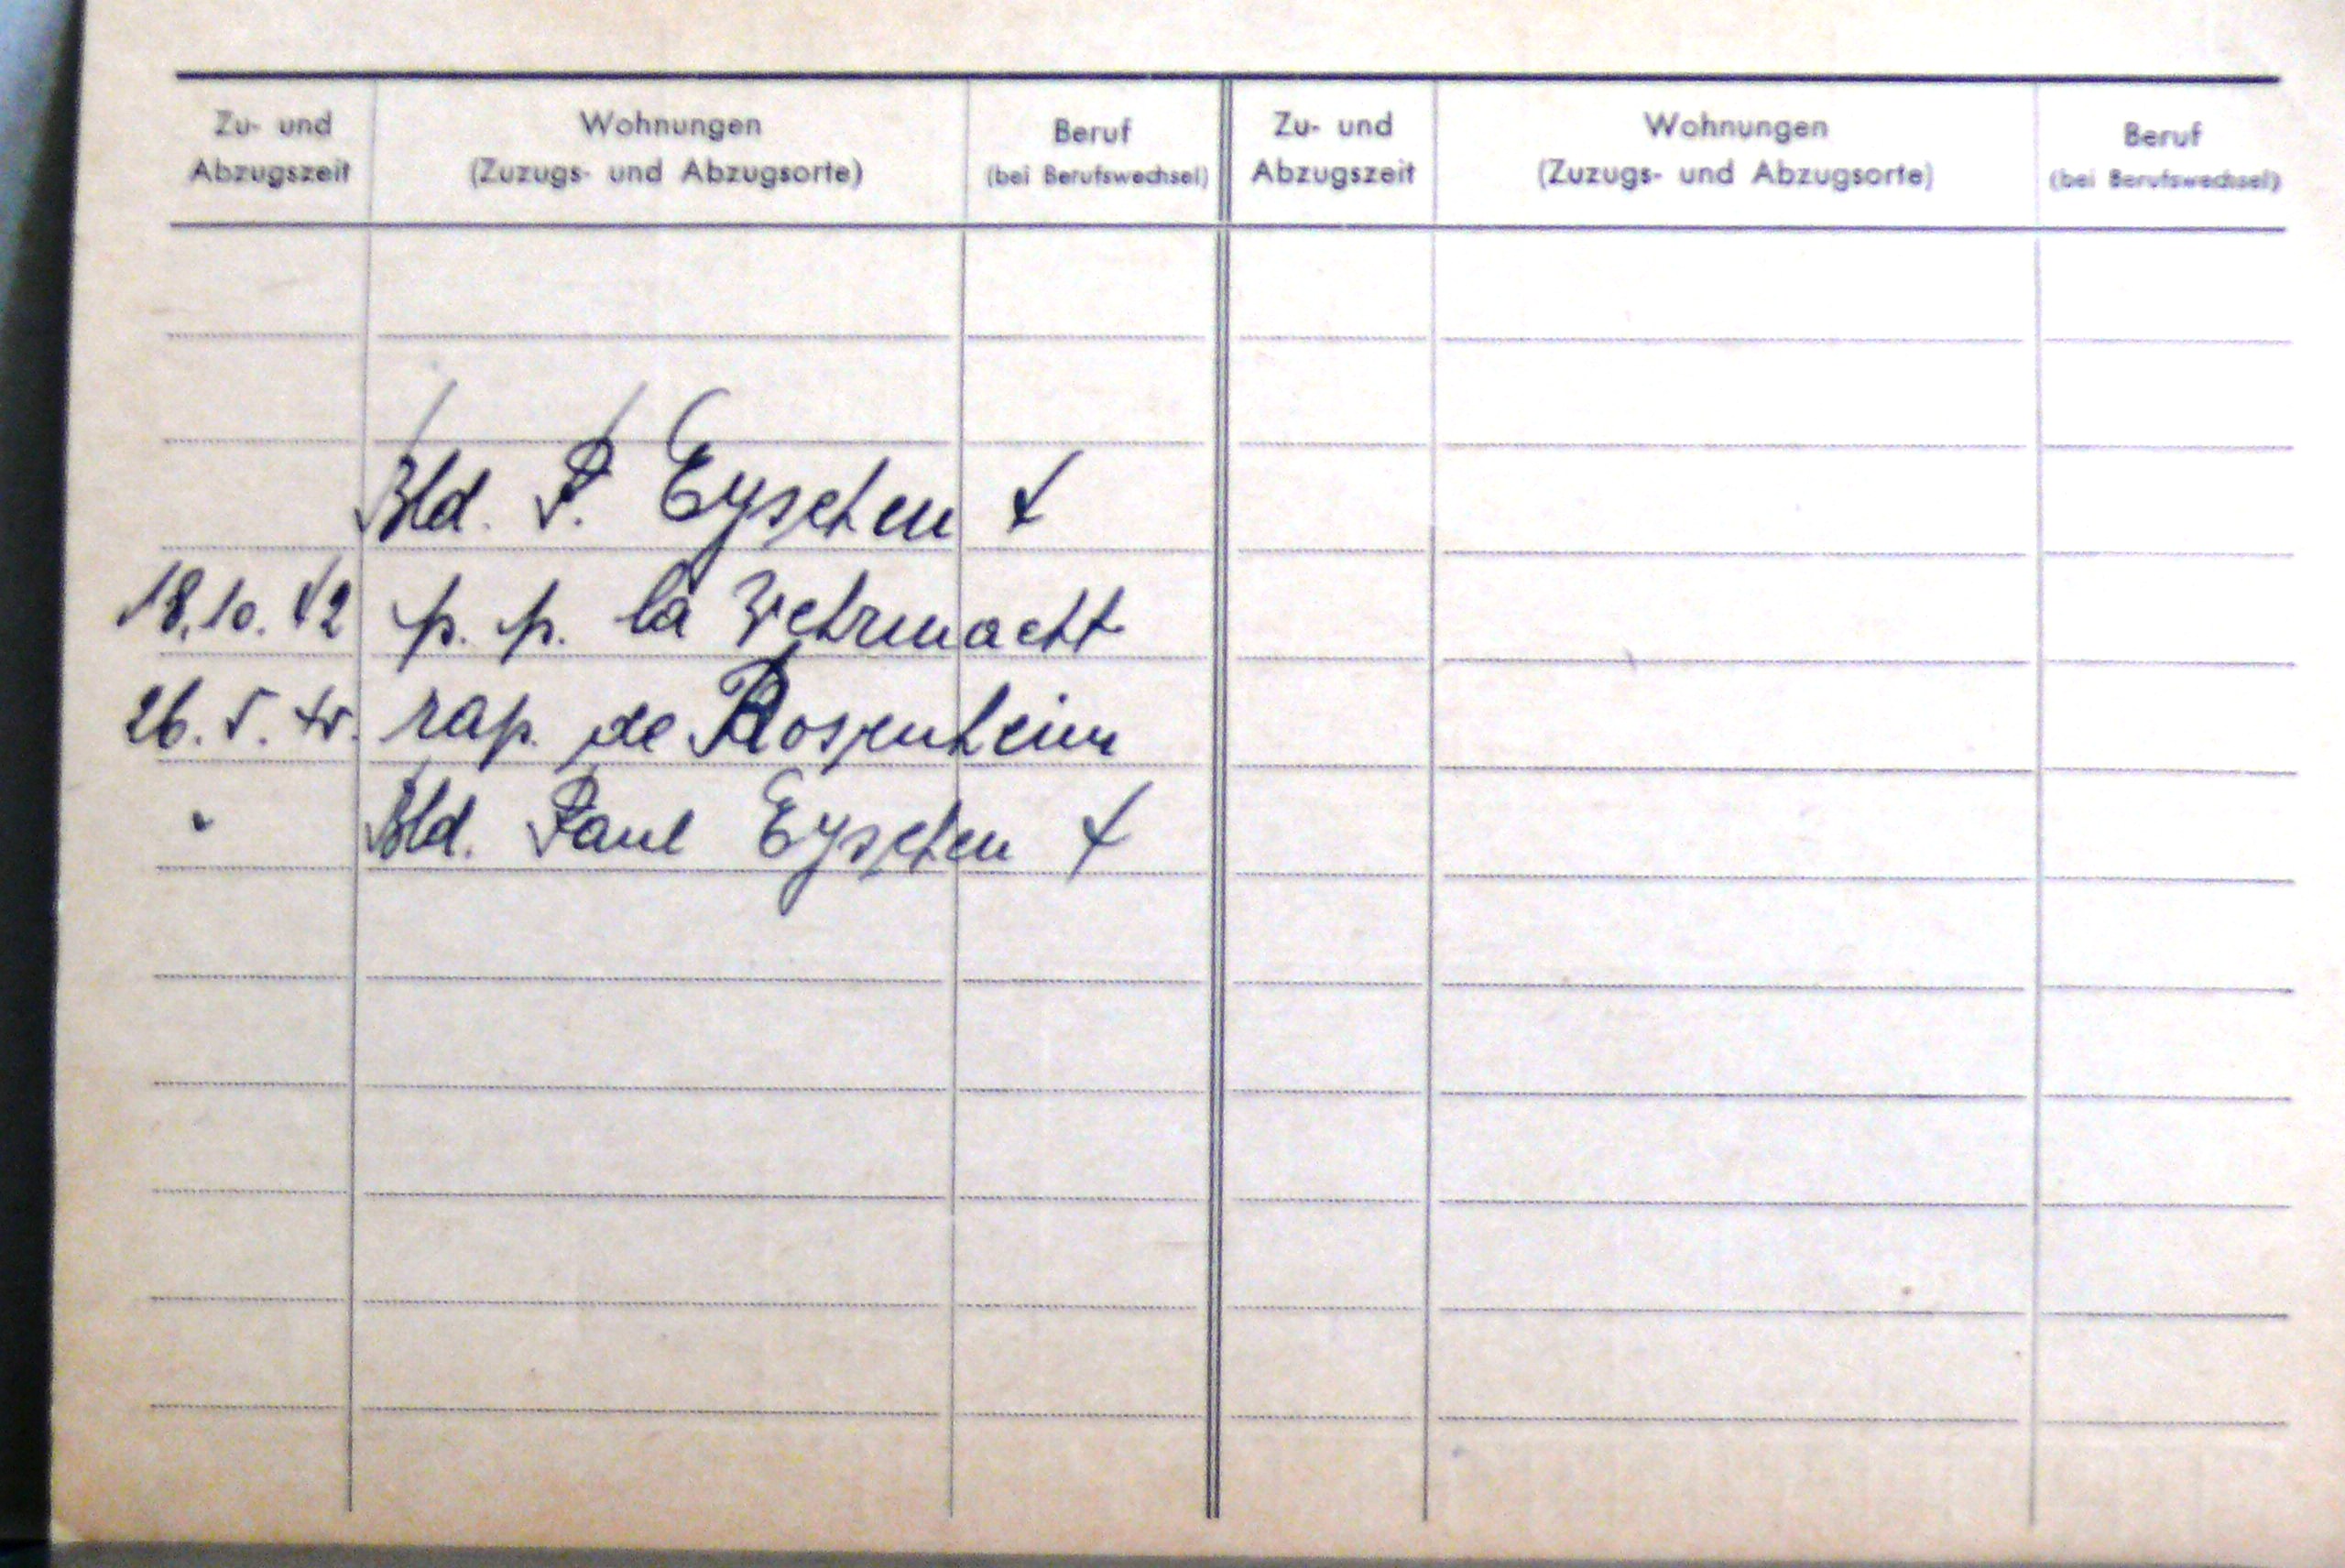 Zu- und Abzugszeit Wohnungen (Zuzugs- und Abzugsorte) Beruf (bei Berufswechsel) Zu- und Abzugszeit Wohnungen (Zuzugs- und Abzugsorte) Beruf (bei Berufswechsel)
Bld. P. Eyschen
18.10.42 p. p. la Wehrmacht
26. 5. 45. rap. de Rosenheim
" Bld. Paul Eyschen